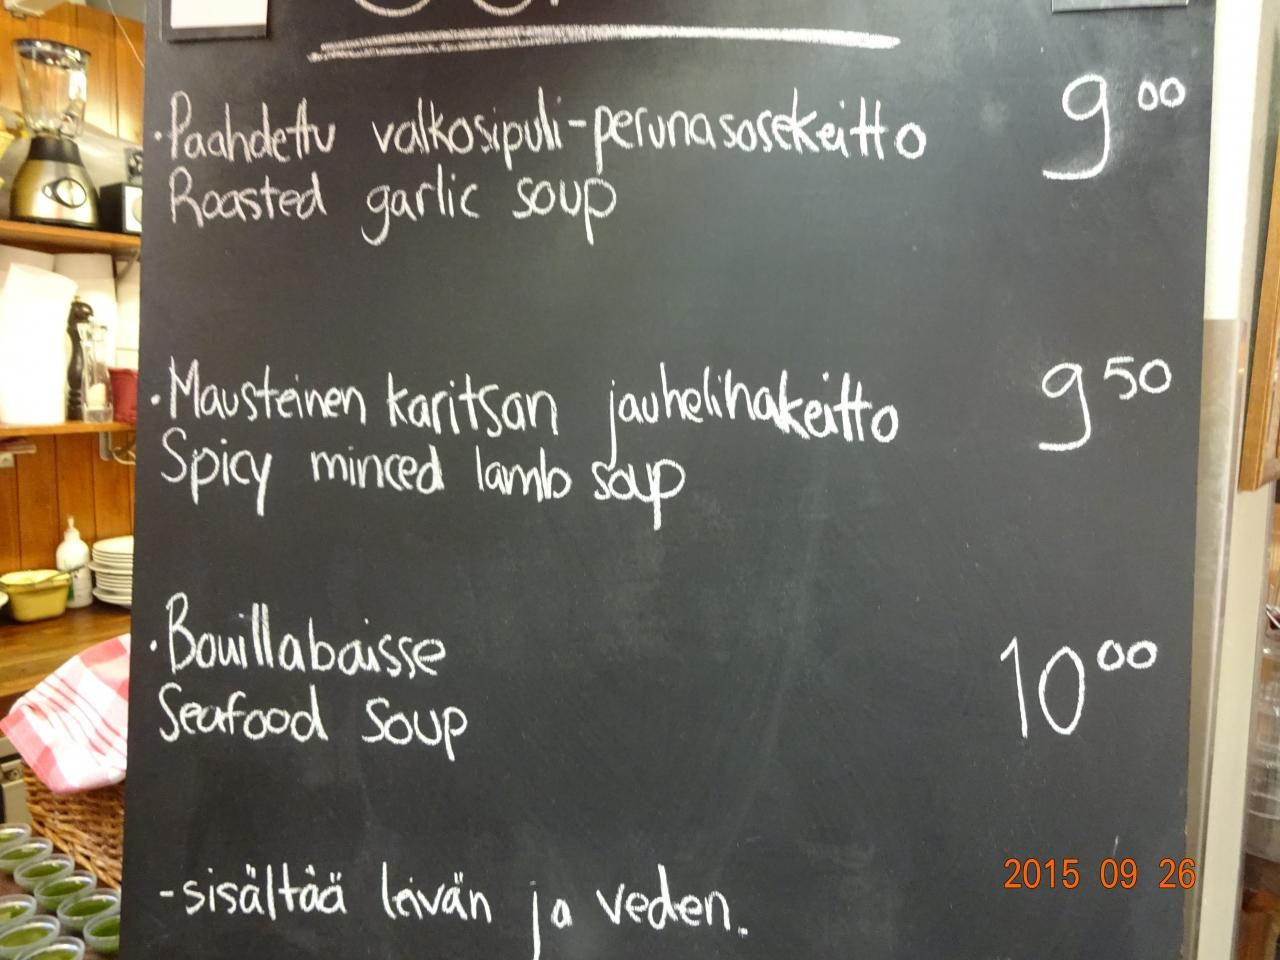 ·Paahdettu valkosipuli-perunasosekeitto 9 00
Roasted garlic soup
·Mausteinen karitsan jauhelihakeitto 9 50
Spicy minced lamb soup
·Bouillabaisse 10 00
Seafood Soup
-sisältää leivän ja veden.
2015 09 26